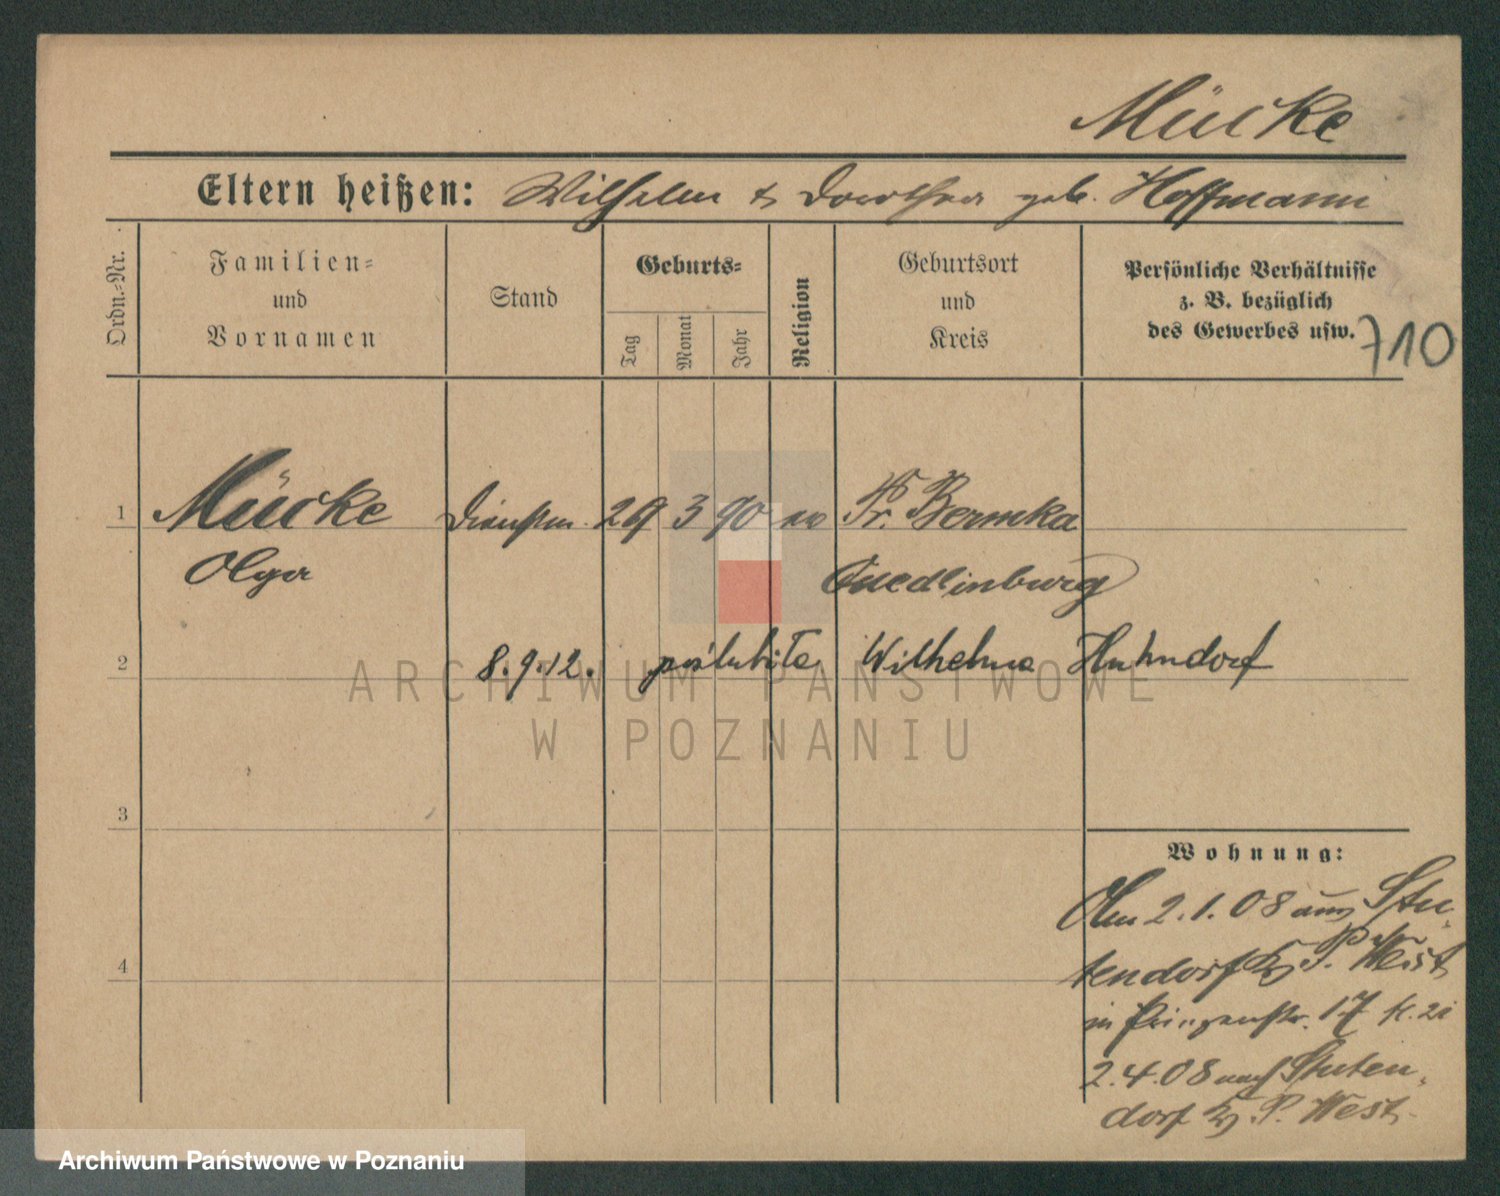 Mücke
Eltern heißen: Wilhelm & Dorothea geb. Hoffmann
Ordn.-Nr.
Familien-
und
Vornamen
Stand
Geburts-
Tag
Monat
Jahr
Religion
Geburtsort
und
Kreis
Persönliche Verhältnisse
z. B. bezüglich
des Gewerbes usw.
710
1 Mücke Dienstm. 29 3 90 ev Kr.
Olga Quedlinburg
2 8.9.12. poślubiła Wilhelma Huhndorf
ARCHIWUM PAŃSTWOWE
W POZNANIU
3
Wohnung:
Am 2.1.08 aus Stu-
4
tendorf Kr. P. West
in Prinzenstr. 17
2.4.08 nach Stuten-
dorf Kr. P. West.
Archiwum Państwowe w Poznaniu